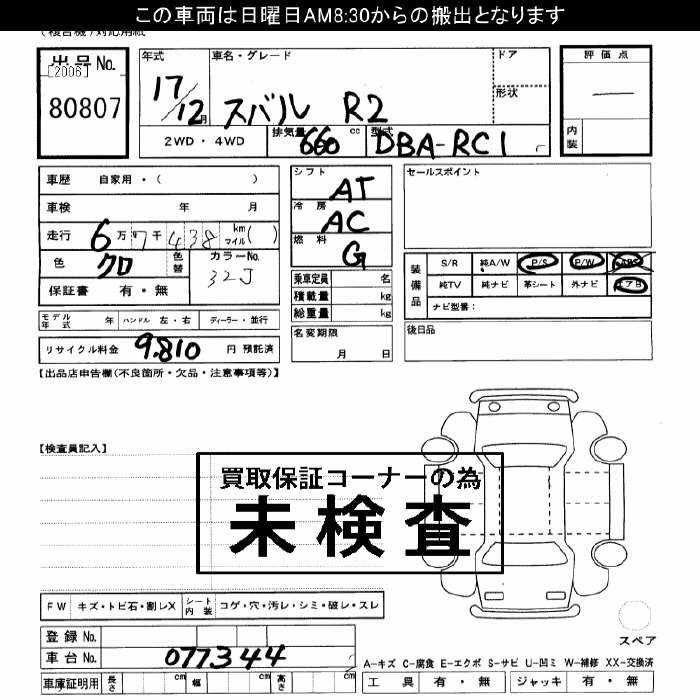 この車両は日曜日AM8:30からの搬出となります
(複合機)対応用紙
出品No.
[2006]
80807
年式
17/12月
車名・グレード
スバル R2
ドア
形状
2WD・4WD
排気量 660 cc
型式 DBA-RC1
評価点
—
内装
車歴 自家用・( )
車検 年 月
走行 6万7千438 km マイル( )
色 クロ
色替
カラーNo. 32J
保証書 有・無
モデル年式 年 ハンドル 左・右 ディーラー・並行
リサイクル料金 9,810 円 預託済
シフト AT
冷房 AC
燃料 G
乗車定員 名
積載量 kg
総重量 kg
名変期限
月 日
セールスポイント
装備品
S/R 純A/W P/S P/W ABS
純TV 純ナビ 革シート 外ナビ エアB
ナビ型番:
後日品
【出品店申告欄(不良箇所・欠品・注意事項等)】
【検査員記入】
買取保証コーナーの為
未検査
FW キズ・トビ石・割レX シート内装 コゲ・穴・汚レ・シミ・破レ・スレ
登録No.
車台No. 077344
車庫証明用 長さ 幅 高さ
スペア
A-キズ C-腐食 E-エクボ S-サビ U-凹ミ W-補修 XX-交換済
工具 有・無 ジャッキ 有・無